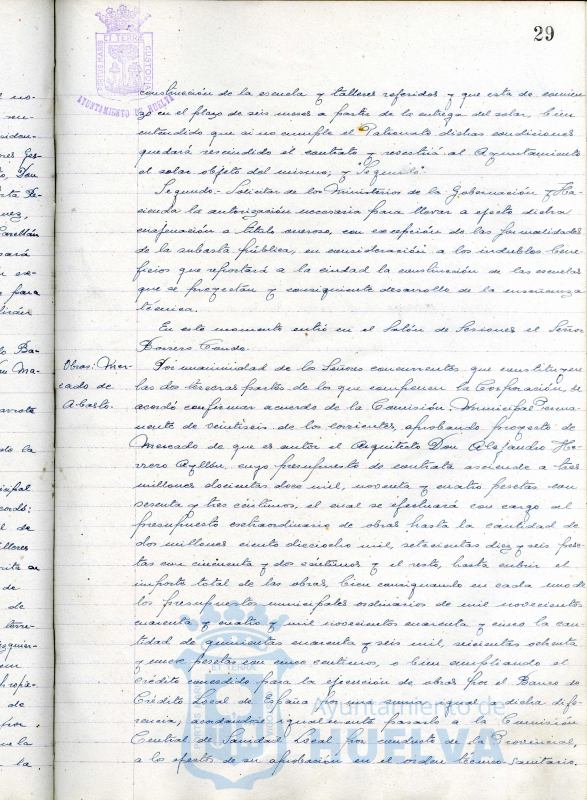 29
PORTUS MARIS ET TERRAE CUSTODIA
AYUNTAMIENTO DE HUELVA
construcción de la escuela y talleres referidos y que esta de comien-
zo en el plazo de seis meses a partir de la entrega del solar, bien
entendido que si no cumple el Patronato dichas condiciones
quedará rescindido el contrato y revertirá al Ayuntamiento
el solar objeto del mismo; y "Segundo"
Segundo.- Solicitar de los Ministerios de la Gobernación y Ha-
cienda la autorización necesaria para llevar a efecto dicha
enajenación a título oneroso, con excepción de las formalidades
de la subasta pública, en consideración a los indudables bene-
ficios que reportará a la ciudad la construcción de las escuelas
que se proyectan y consiguiente desarrollo de la enseñanza
técnica.
En este momento entró en el Salón de Sesiones el Señor
Borrero Conde.
Obras: Mer-
cado de
Abasto.
Por unanimidad de los Señores concurrentes que constituyen
las dos terceras partes de los que componen la Corporación, se
acordó confirmar acuerdo de la Comisión Municipal Perma-
nente de veintiseis de los corrientes, aprobando proyecto de
Mercado de que es autor el Arquitecto Don Alejandro He-
rrero Ayllón, cuyo presupuesto de contrata asciende a tres
millones doscientas doce mil, noventa y cuatro pesetas con
sesenta y tres céntimos, el cual se efectuará con cargo al
presupuesto extraordinario de obras hasta la cantidad de
dos millones ciento dieciocho mil, setecientas diez y seis pese-
tas con cincuenta y dos céntimos y el resto, hasta cubrir el
importe total de las obras, bien consignando en cada uno de
los presupuestos municipales ordinarios de mil novecientos
cuarenta y cuatro y mil novecientos cuarenta y cinco la can-
tidad de quinientas cuarenta y seis mil, seiscientas ochenta
y nueve pesetas con cinco céntimos, o bien ampliando el
crédito concedido para la ejecución de obras por el Banco de
Crédito Local de España por la suma igual a dicha dife-
rencia; acordándose igualmente pasarlo a la Comisión
Central de Sanidad Local por conducto de la Provincial,
a los efectos de su aprobación en el orden técnico-sanitario.
Ayuntamiento de
HUELVA